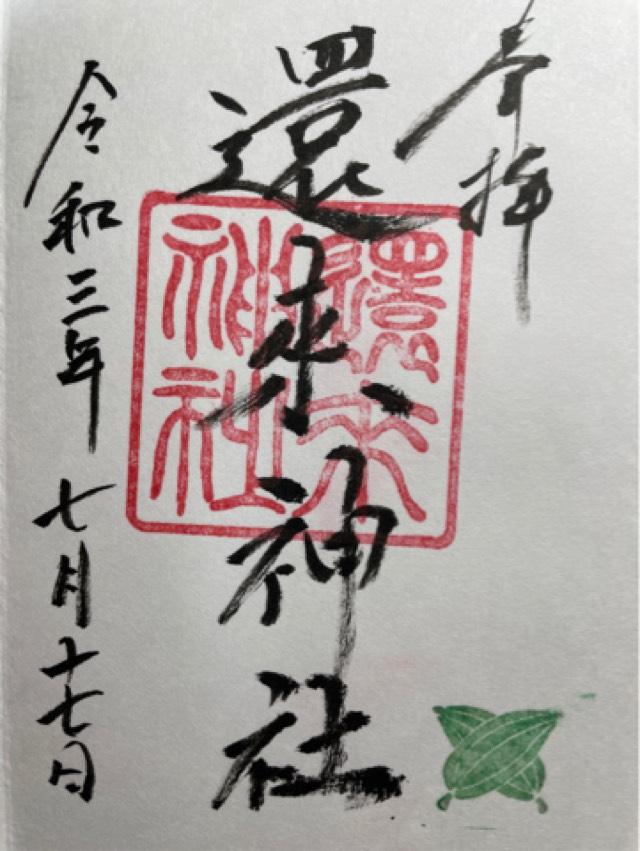 奉拝
還来神社
還来
神社
令和三年七月十七日